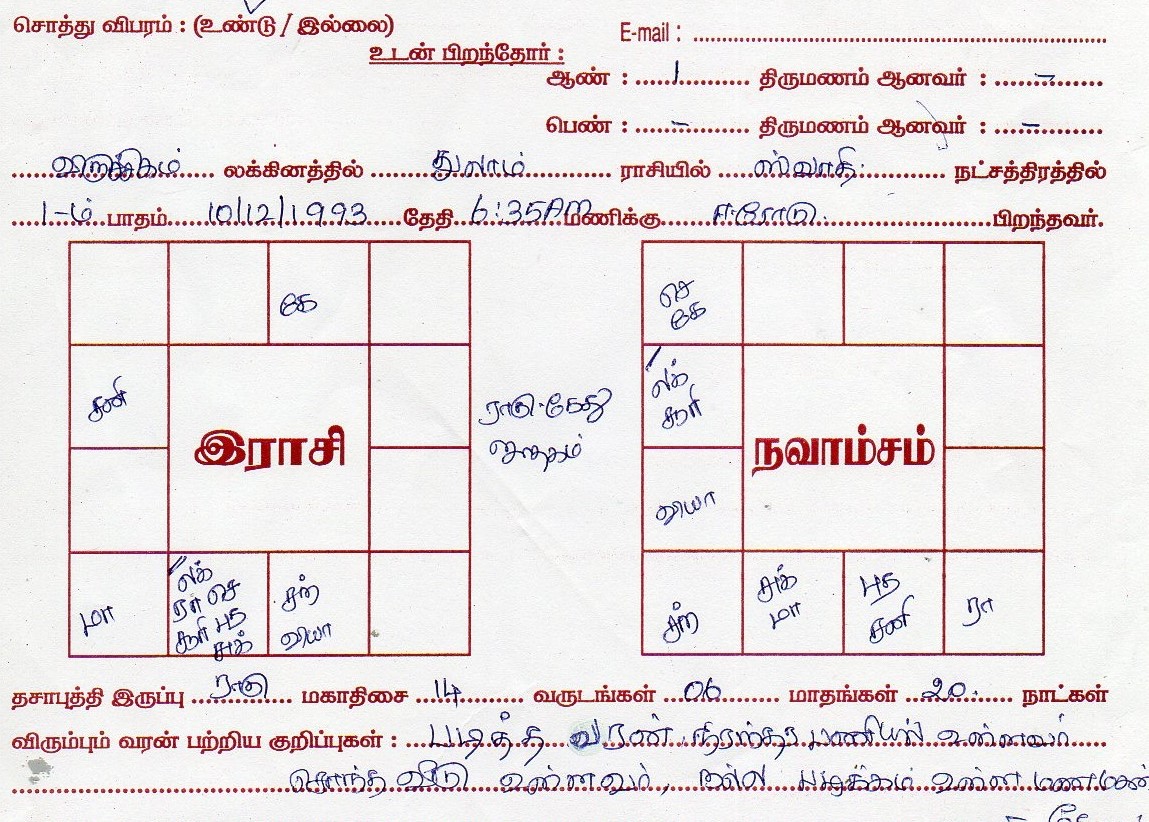 சொத்து விபரம் : (உண்டு / இல்லை)
E-mail :
உடன் பிறந்தோர் :
ஆண் : 1 திருமணம் ஆனவர் : –
பெண் : – திருமணம் ஆனவர் : –
லக்கினத்தில் துலாம் ராசியில் ஸ்வாதி நட்சத்திரத்தில்
1-ம் பாதம் 10/12/1993 தேதி 6:35AM மணிக்கு ஈரோடு பிறந்தவர்.
கே
சனி
இராசி
மா
லக்
ரா செ
சூரி புத
சுக்
சந்
வியா
ராகு-கேது
ஜாதகம்
செ
கே
லக்
சூரி
நவாம்சம்
வியா
சந்
சுக்
மா
புத
சனி
ரா
தசாபுத்தி இருப்பு ராகு மகாதிசை 14 வருடங்கள் 06 மாதங்கள் 20 நாட்கள்
விரும்பும் வரன் பற்றிய குறிப்புகள் : படித்த வரன் நிரந்தர பணியில் உள்ளவர்
சொந்த வீடு உள்ளவர், நல்ல பழக்கம் உள்ள மணமகன்